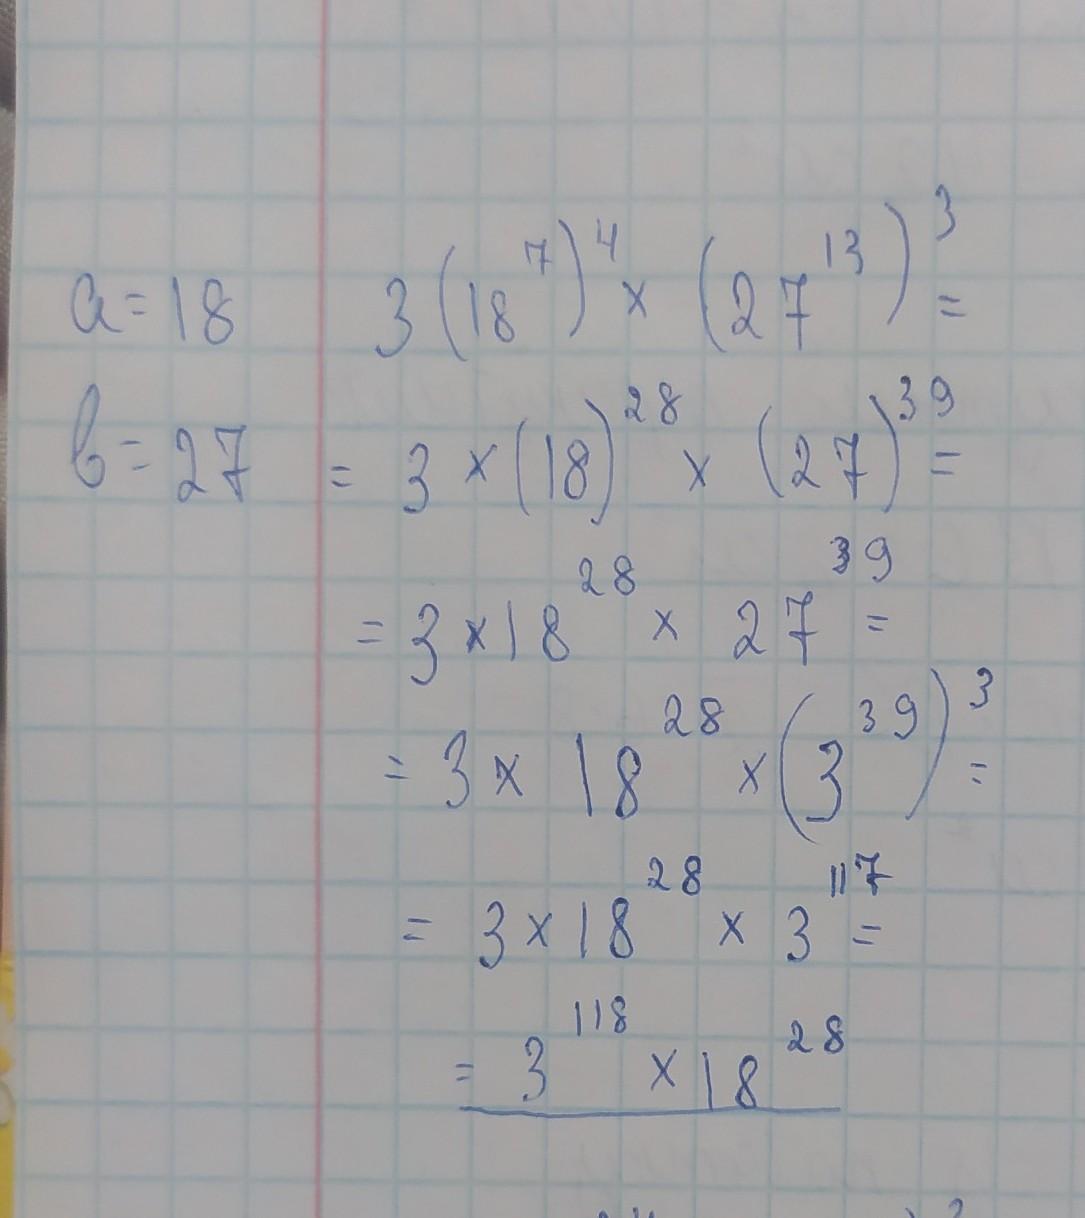 a = 18 3(18⁷)⁴ × (27¹³)³ =
b = 27 = 3 × (18)²⁸ × (27)³⁹ =
= 3 × 18²⁸ × 27³⁹ =
= 3 × 18²⁸ × (3³⁹)³ =
= 3 × 18²⁸ × 3¹¹⁷ =
= 3¹¹⁸ × 18²⁸